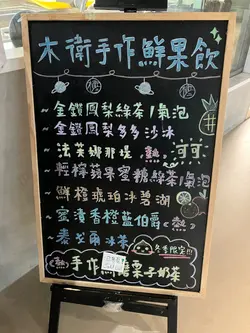 木衛手作鮮果飲
~金鑽鳳梨綠茶/氣泡
~金鑽鳳梨多多冰沙
~法芙娜那堤 熱
~輕檸蘋果蜜糖綠茶/氣泡
~鮮橙琥珀冰碧湖
~蜜漬香橙藍伯爵 熱
~麦以爾冰茶
冬季限定!!!
熱 手作 糖栗子奶茶